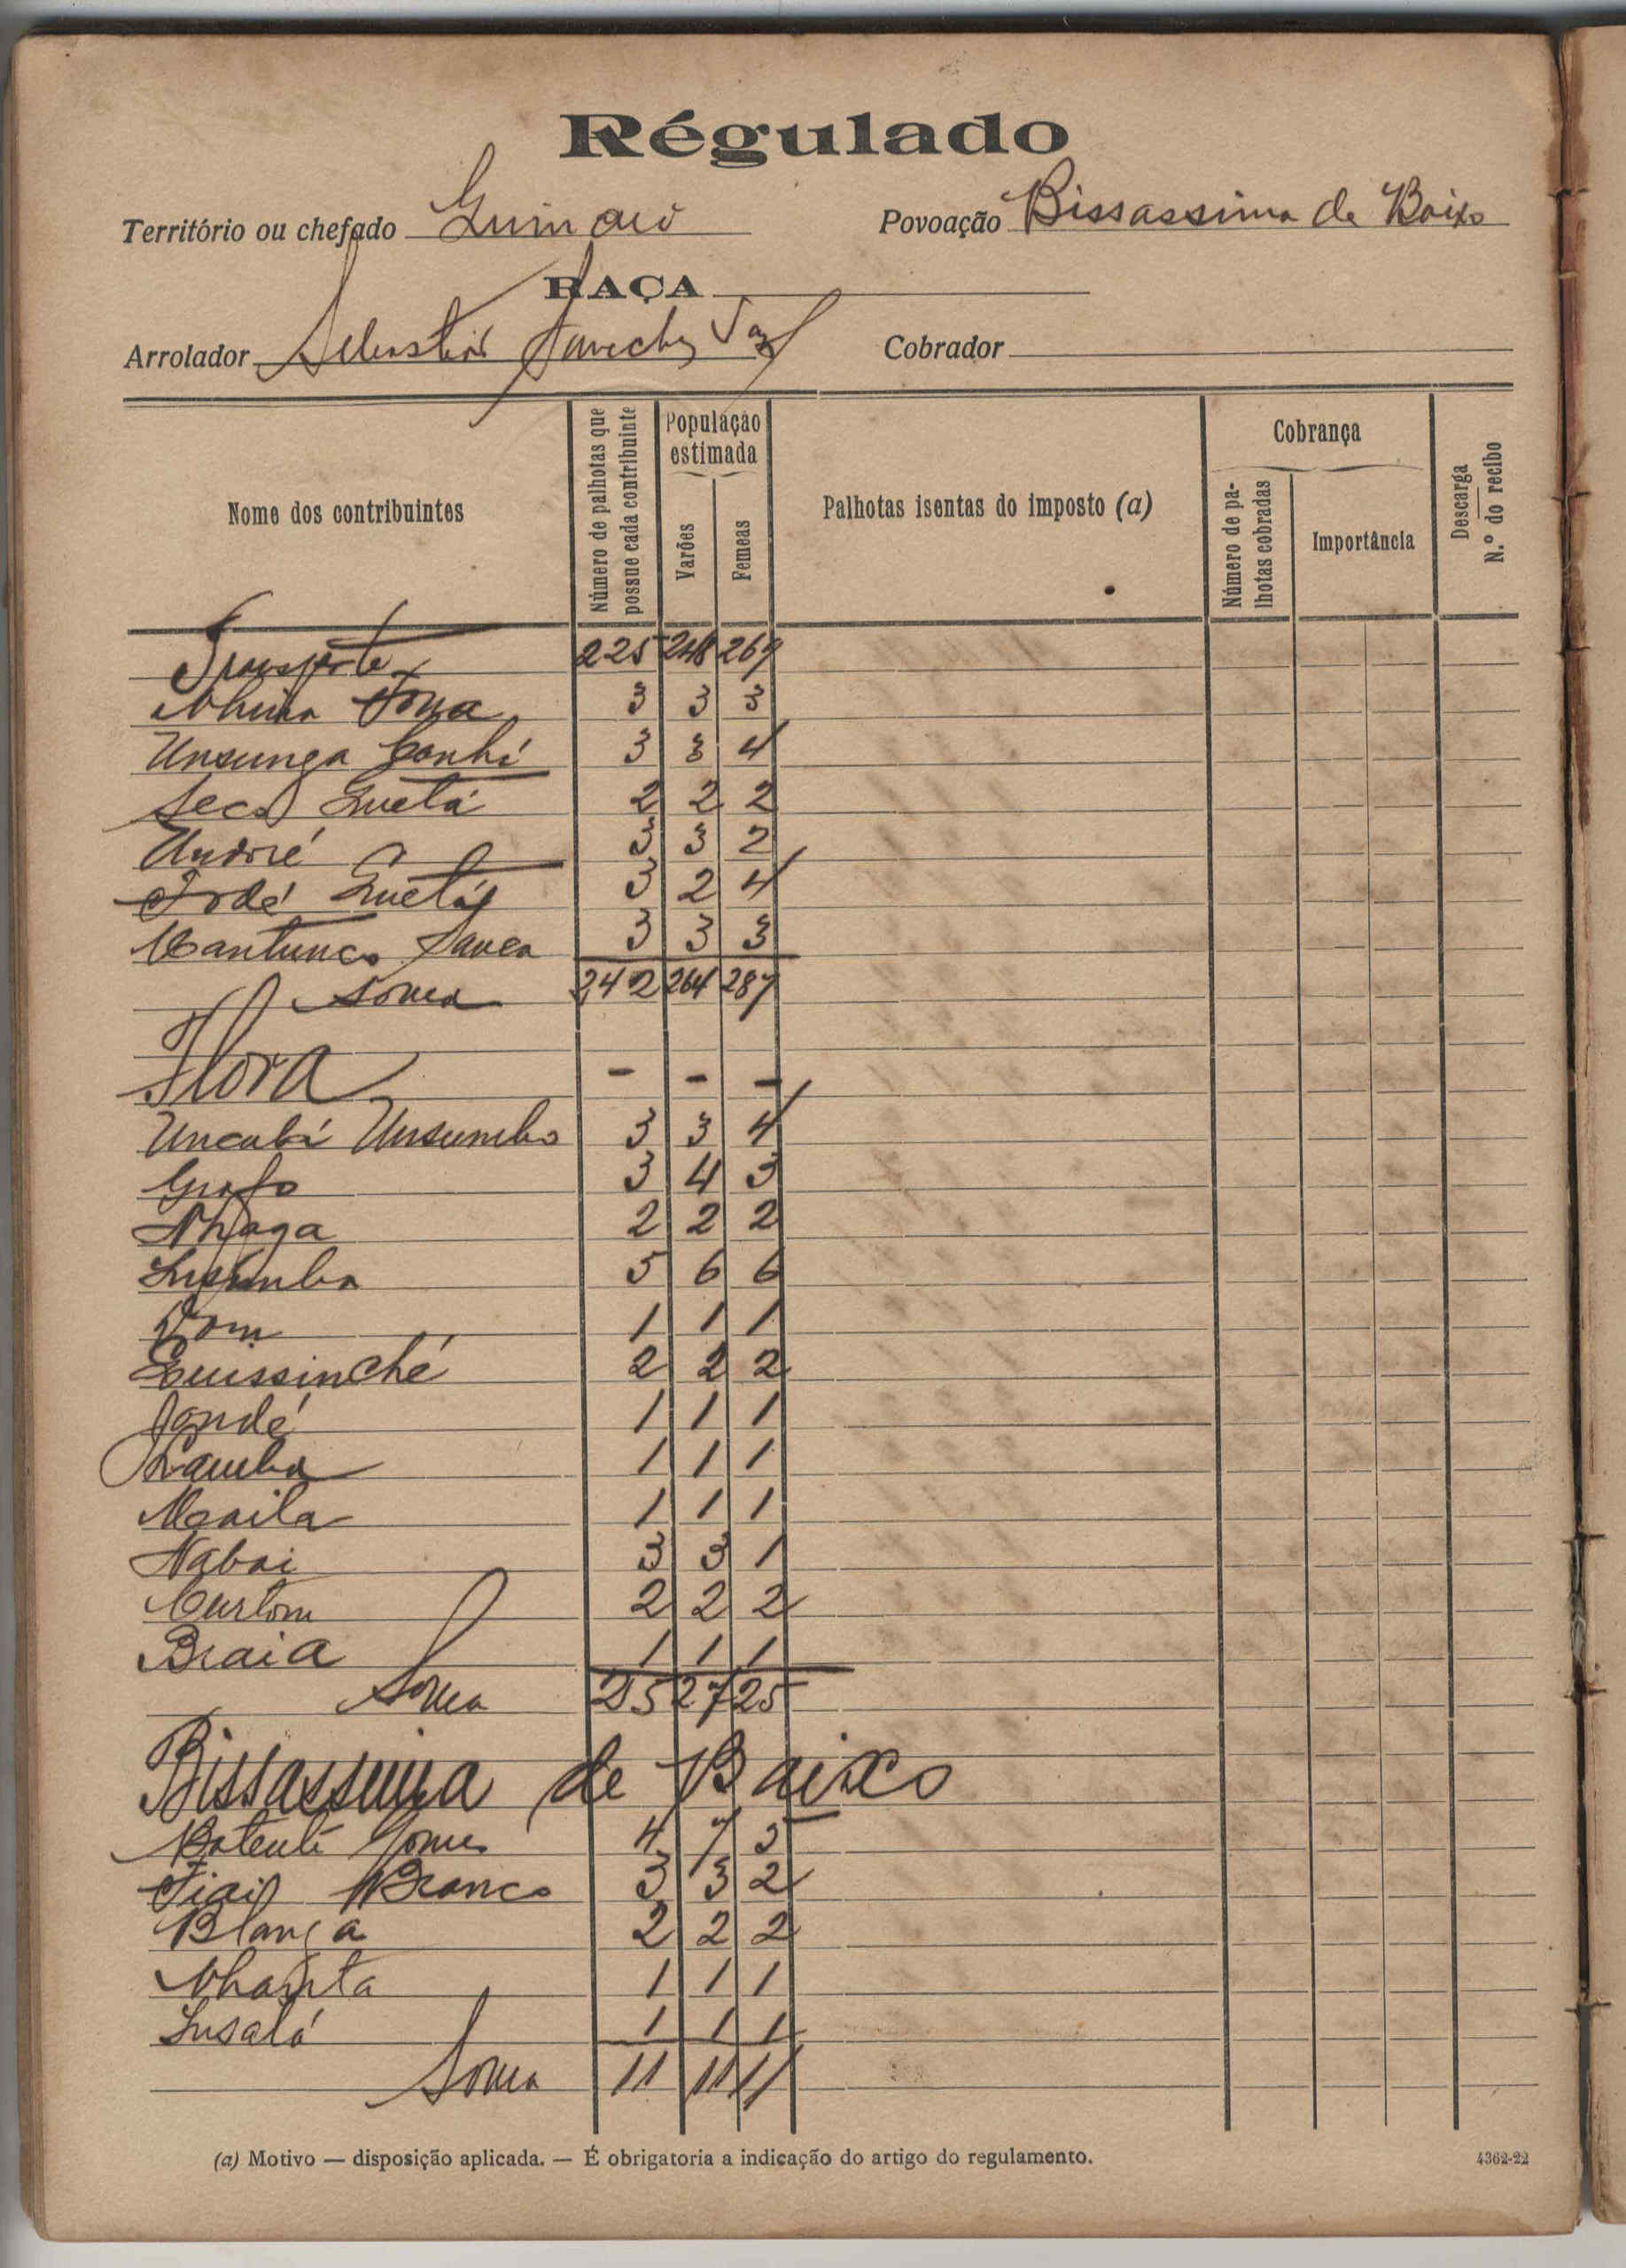 Régulado
Território ou chefado Povoação Bissassima de Baixo
RAÇA
Arrolador Sebastião Sanches Vaz Cobrador
Nome dos contribuintes Número de palhotas que possue cada contribuinte População estimada Varões Femeas Palhotas isentas do imposto (a) Cobrança Número de palhotas cobradas Importância Descarga N.º do recibo
Transporte 225 248 269
3 3 3
Unsunga Canhi 3 3 4
Seco Quetá 2 2 2
André 3 3 2
Quetá 3 2 4
3 3 3
Soma 242 264 287
Flora - - -
Uncubá Unsumbo 3 3 4
Grafo 3 4 3
Nhaga 2 2 2
5 6 6
Dom 1 1 1
Quissinché 2 2 2
Jondé 1 1 1
Lamba 1 1 1
Maila 1 1 1
Nabai 3 3 1
2 2 2
Braia 1 1 1
Soma 25 27 25
Bissassima de Baixo
Batenté Gomes 4 7 5
Branco 3 3 2
Blanća 2 2 2
Nhanta 1 1 1
Insalá 1 1 1
Soma 11 11 11
(a) Motivo — disposição aplicada. — É obrigatoria a indicação do artigo do regulamento. 4362-22